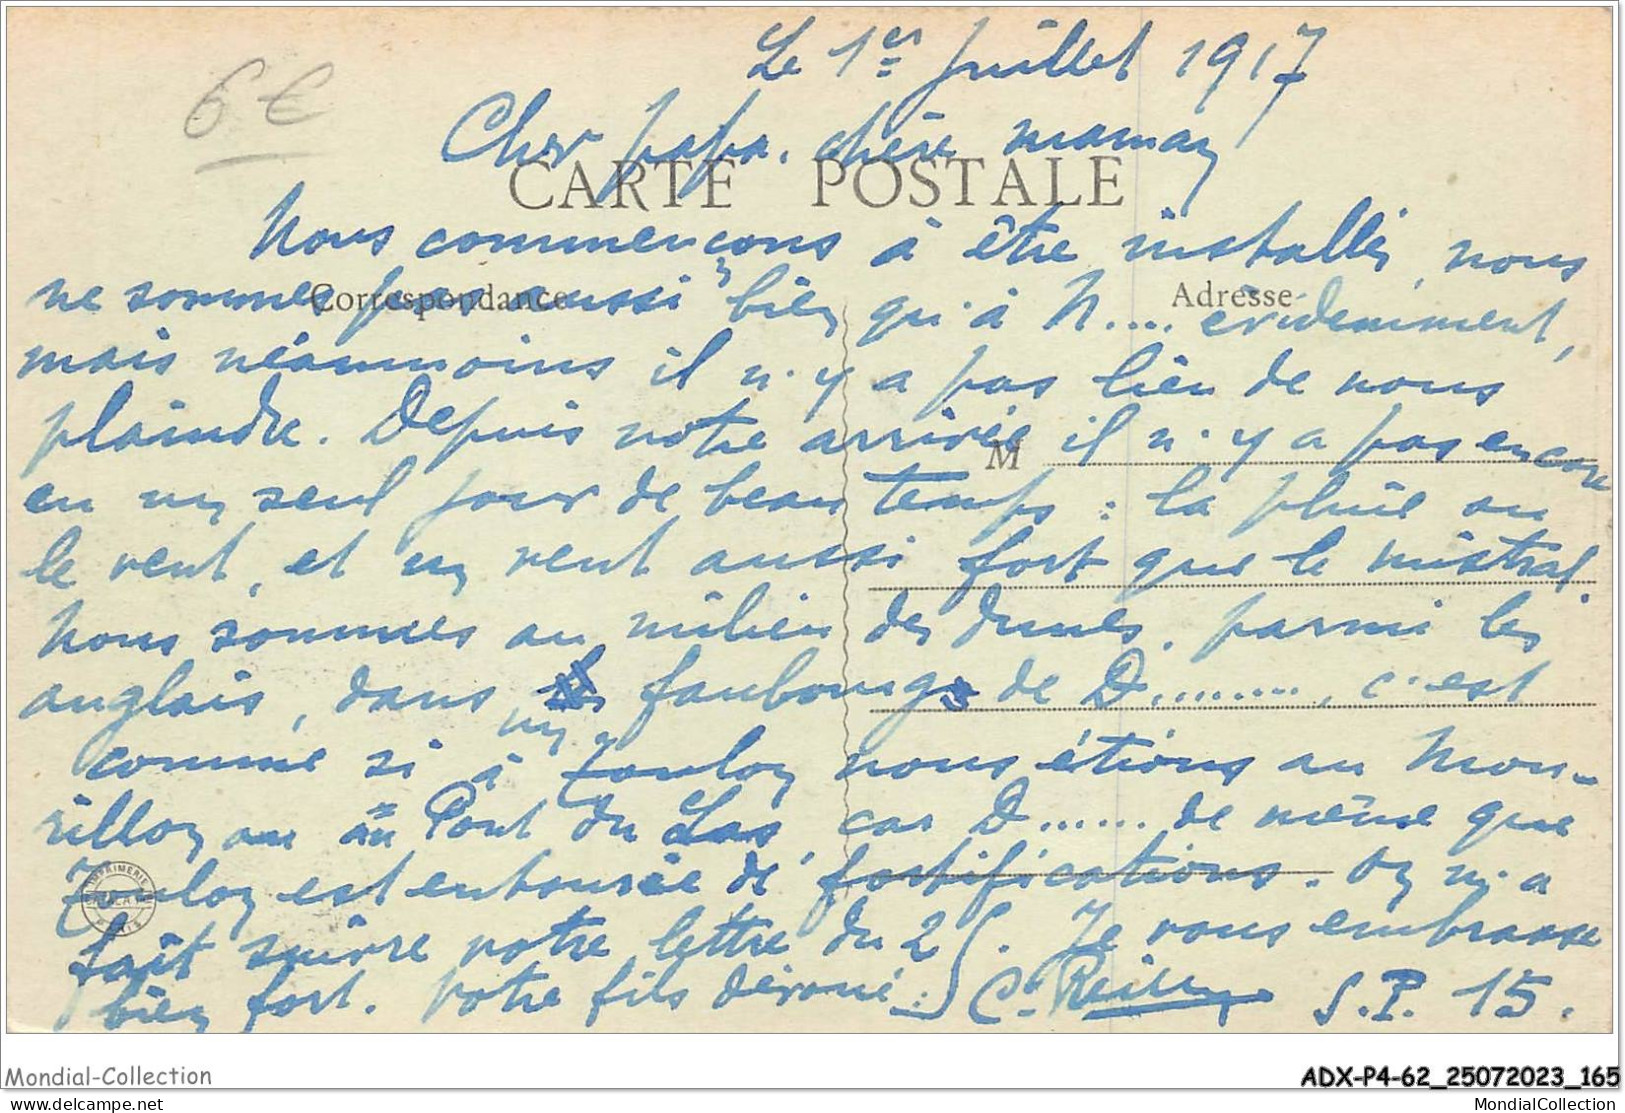 6€
Le 1er Juillet 1917
Cher papa, chère maman
CARTE POSTALE
Nous commençons à être installés, nous
ne sommes pas aussi bien qu'à N.... évidemment,
Correspondance
Adresse
mais néanmoins il n'y a pas lieu de nous
plaindre. Depuis notre arrivée il n'y a pas encore
M
eu un seul jour de beau temps : la pluie ou
le vent, et un vent aussi fort que le mistral.
Nous sommes au milieu des dunes, parmi les
anglais, dans un faubourg de D........., c'est
comme si à Toulon nous étions au Mou-
rillon ou au Pont du Las, car D...... de même que
Toulon est entourée de fortifications. On m'a
IMPRIMERIE
PARIS
fait suivre votre lettre du 25. Je vous embrasse
bien fort. Votre fils dévoué : C. S.P. 15.
Mondial-Collection
ADX-P4-62_25072023_165
delcampe.net
MondialCollection